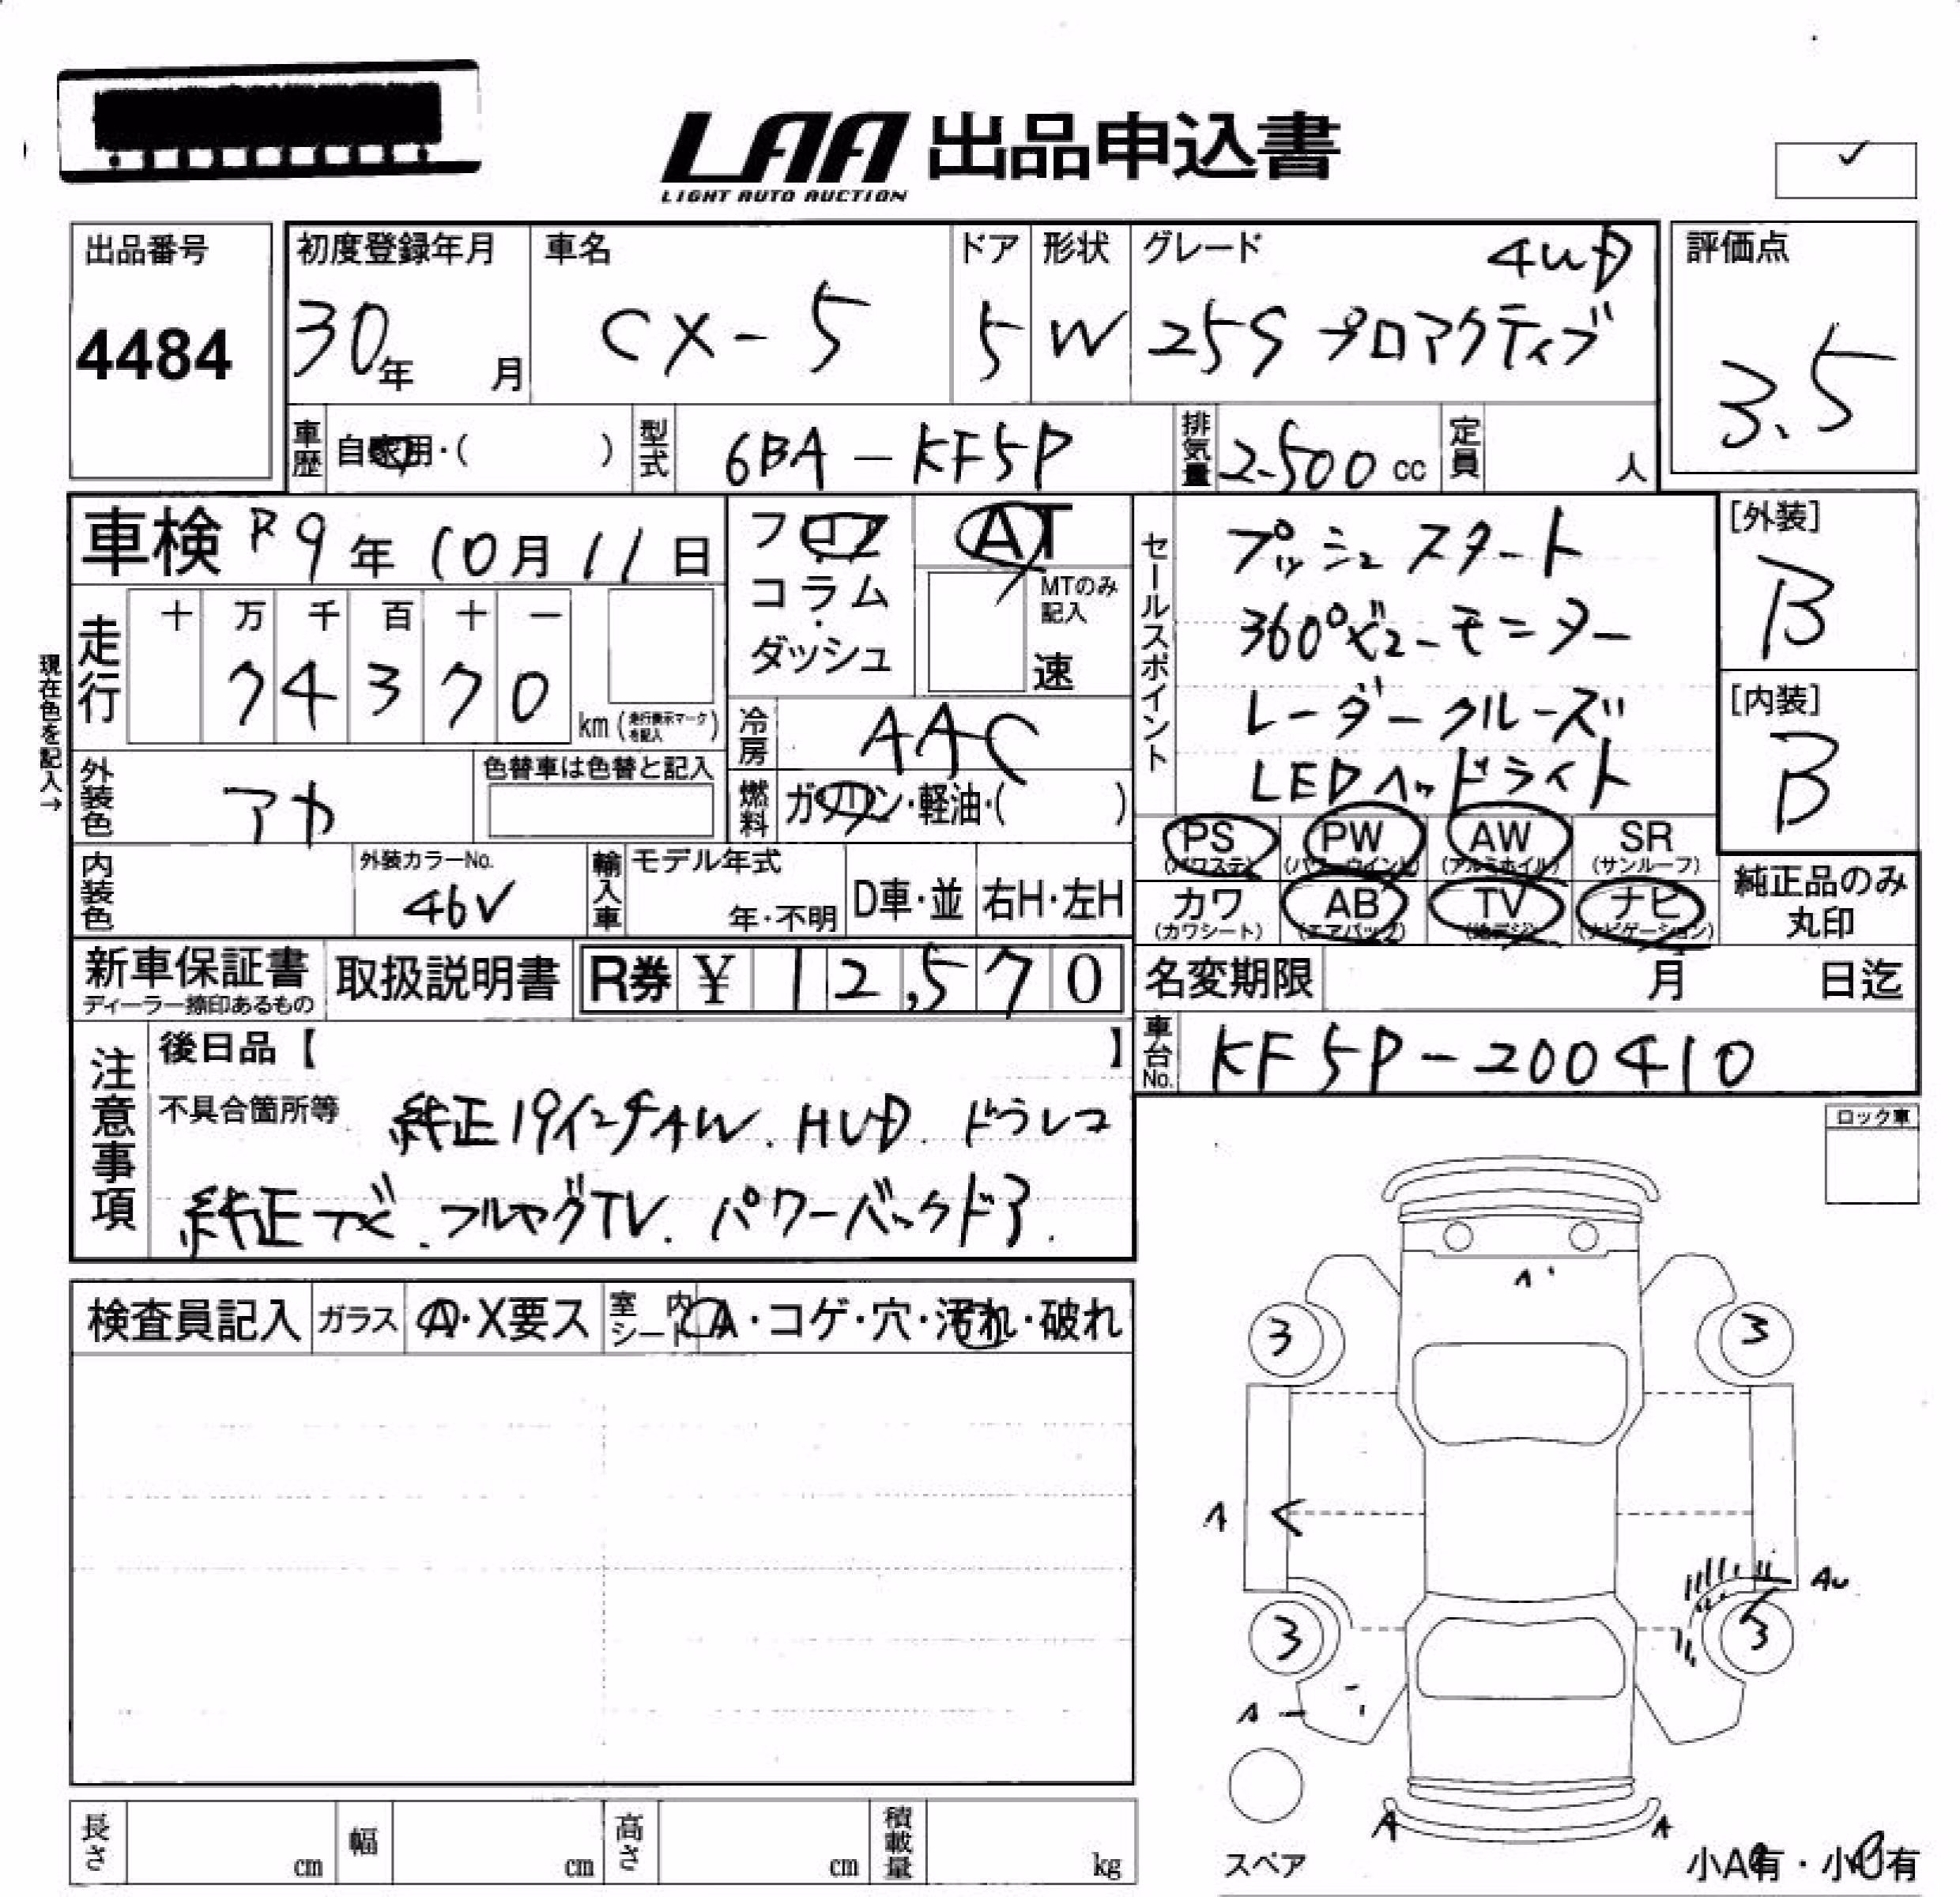 LAA 出品申込書
LIGHT AUTO AUCTION
出品番号
4484
初度登録年月
30年 月
車名
CX-5
ドア
5
形状
W
グレード
4WD
25S プロアクティブ
評価点
3.5
車歴
自家用・( )
型式
6BA-KF5P
排気量
2500 cc
定員
人
車検 R9年 10月 11日
フロア
・
コラム
・
ダッシュ
AT
MTのみ
記入
速
セールスポイント
プッシュスタート
360°ビューモニター
レーダークルーズ
LEDヘッドライト
[外装]
B
[内装]
B
現在色を記入→
走行
十 万 千 百 十 一
7 4 3 7 0
km (走行表示マークを記入)
冷房
AAC
外装色
アカ
色替車は色替と記入
燃料
ガソリン・軽油・( )
PS
(パワステ)
PW
(パワーウインド)
AW
(アルミホイル)
SR
(サンルーフ)
カワ
(カワシート)
AB
(エアバッグ)
TV
(地デジ)
ナビ
(ナビゲーション)
純正品のみ
丸印
内装色
外装カラーNo.
46V
輸入車
モデル年式
年・不明
D車・並
右H・左H
新車保証書
ディーラー捺印あるもの
取扱説明書
R券 ¥ 12,570
名変期限 月 日迄
車台No.
KF5P-200410
注意事項
後日品【 】
不具合箇所等
純正19インチAW. HUD. ドラレコ
純正ナビ. フルセグTV. パワーバックドア.
ロック車
検査員記入
ガラス
A・X要ス
室内
シート
A・コゲ・穴・汚れ・破れ
3
3
A
AU
3
3
A
A
A
スペア
小A有・小U有
長さ
cm
幅
cm
高さ
cm
積載量
kg